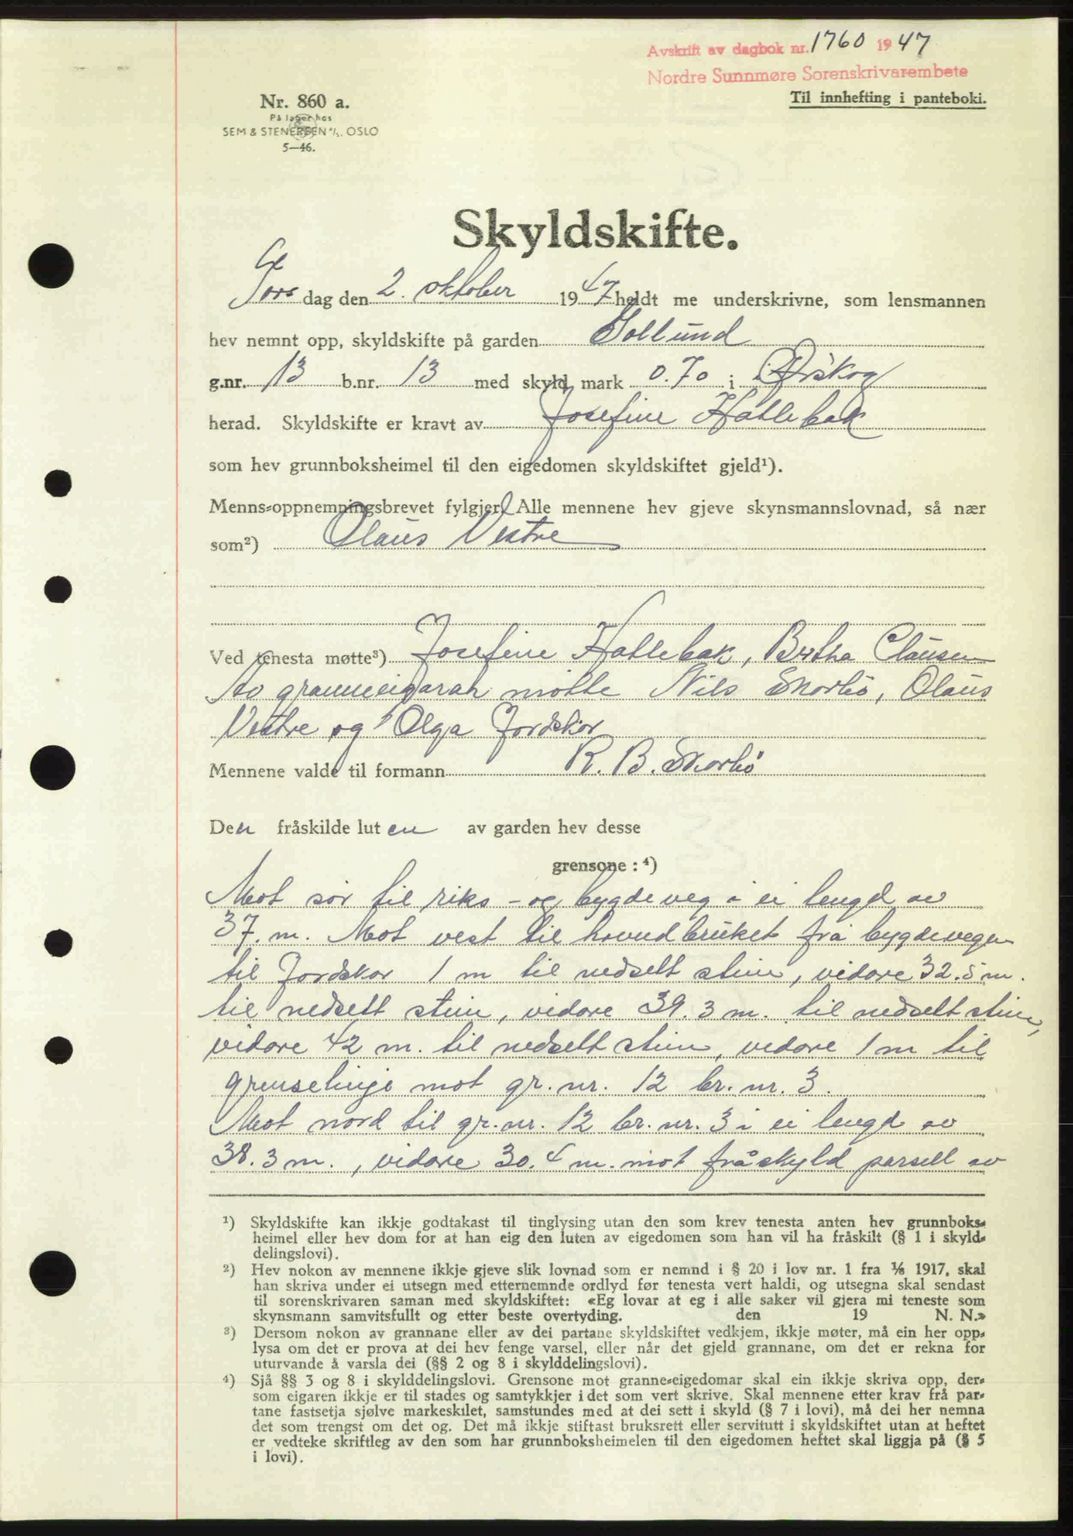 Avskrift av dagbok nr. 1760 1947
Nordre Sunnmøre Sorenskrivarembete
Til innhefting i panteboki.
Nr. 860 a.
På lager hos
SEM & STENERSEN A/S. OSLO
5—46.
Skyldskifte.
Tors dag den 2. oktober 1947 heldt me underskrivne, som lensmannen
hev nemnt opp, skyldskifte på garden Sollund
g.nr. 13 b.nr. 13 med skyld mark 0.70 i Ørskog
herad. Skyldskifte er kravt av Josefine Hatlebak
som hev grunnboksheimel til den eigedomen skyldskiftet gjeld¹).
Menns-oppnemningsbrevet fylgjer. Alle mennene hev gjeve skynsmannslovnad, så nær
som²) Olaus Vestre
Ved tenesta møtte³) Josefine Hatlebak, Bertha Clausen
Av granneeigarar møtte Nils Skorbö, Olaus
Vestre og Olga Jordskor
Mennene valde til formann R. B. Skorbö
Den fråskilde luten av garden hev desse
grensone : ⁴)
Mot sør til riks - og bygdeveg i ei lengd av
37. m. Mot vest til hovudbruket frå bygdevegen
til Jordskor 1 m til nedsett stein, vidare 32.5 m.
til nedsett stein, vidare 39.3 m. til nedsett stein,
vidare 42 m. til nedsett stein, vidare 1 m til
grenselinje mot gr. nr. 12 br. nr. 3.
Mot nord til gr. nr. 12 br. nr. 3 i ei lengd av
38.3 m., vidare 30.4 m. mot fråskyld parsell av
¹) Skyldskifte kan ikkje godtakast til tinglysing utan den som krev tenesta anten hev grunnboks-
heimel eller hev dom for at han eig den luten av eigedomen som han vil ha fråskilt (§ 1 i skyld-
delingslovi).
²) Hev nokon av mennene ikkje gjeve slik lovnad som er nemnd i § 20 i lov nr. 1 fra 1/6 1917, skal
han skriva under ei utsegn med etternemnde ordlyd før tenesta vert haldi, og utsegna skal sendast
til sorenskrivaren saman med skyldskiftet: «Eg lovar at eg i alle saker vil gjera mi teneste som
skynsmann samvitsfullt og etter beste overtyding. den 19 N. N.»
³) Dersom nokon av grannane eller av dei partane skyldskiftet vedkjem, ikkje møter, må ein her opp-
lysa om det er prova at dei hev fenge varsel, eller når det gjeld grannane, om det er rekna for
uturvande å varsla dei (§§ 2 og 8 i skylddelingslovi).
⁴) Sjå §§ 3 og 8 i skylddelingslovi. Grensone mot granne-eigedomar skal ein ikkje skriva opp, der-
som eigaren ikkje er til stades og samtykkjer i det som vert skrive. Skal mennene etter krav frå par-
tane fastsetja sjølve markeskilet, samstundes med at dei sett i skyld (§ 7 i lovi), må dei her nemna
det som trengst om det og. Det må ikkje stiftast bruksrett eller servitutt i skyldskiftet utan at heftet
er vedteke skriftleg av den som har grunnboksheimelen til den eigedomen heftet skal liggja på (§ 5
i lovi).